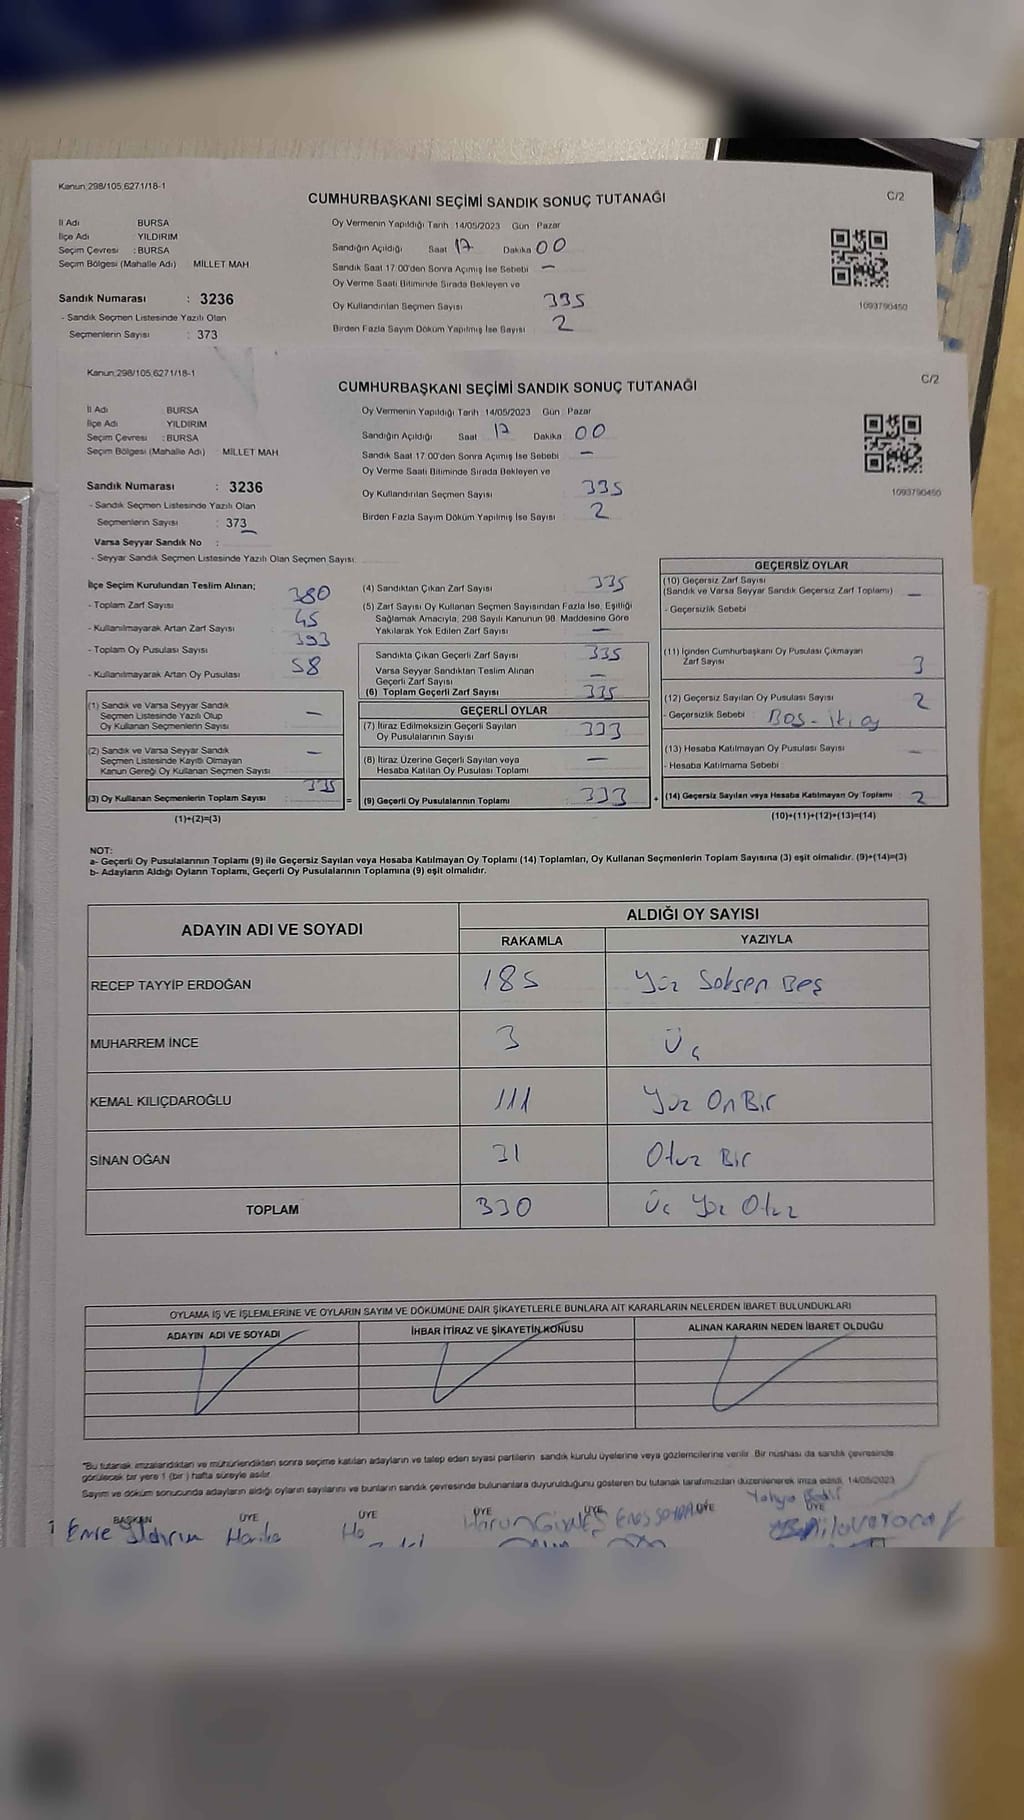 Kanun:298/105,6271/18-1
CUMHURBAŞKANI SEÇİMİ SANDIK SONUÇ TUTANAĞI
C/2
İl Adı BURSA
İlçe Adı YILDIRIM
Seçim Çevresi : BURSA
Seçim Bölgesi (Mahalle Adı) MİLLET MAH
Sandık Numarası : 3236
- Sandık Seçmen Listesinde Yazılı Olan
Seçmenlerin Sayısı : 373
Oy Vermenin Yapıldığı Tarih :14/05/2023 Gün : Pazar
Sandığın Açıldığı Saat 17 Dakika 00
Sandık Saat 17:00'den Sonra Açımış İse Sebebi –
Oy Verme Saati Bitiminde Sırada Bekleyen ve
Oy Kullandırılan Seçmen Sayısı 335
Birden Fazla Sayım Döküm Yapılmış İse Sayısı 2
1093790450
Kanun:298/105,6271/18-1
CUMHURBAŞKANI SEÇİMİ SANDIK SONUÇ TUTANAĞI
C/2
İl Adı BURSA
İlçe Adı YILDIRIM
Seçim Çevresi : BURSA
Seçim Bölgesi (Mahalle Adı) MİLLET MAH
Sandık Numarası : 3236
- Sandık Seçmen Listesinde Yazılı Olan
Seçmenlerin Sayısı : 373
Varsa Seyyar Sandık No :
- Seyyar Sandık Seçmen Listesinde Yazılı Olan Seçmen Sayısı:
Oy Vermenin Yapıldığı Tarih :14/05/2023 Gün : Pazar
Sandığın Açıldığı Saat 17 Dakika 00
Sandık Saat 17:00'den Sonra Açımış İse Sebebi –
Oy Verme Saati Bitiminde Sırada Bekleyen ve
Oy Kullandırılan Seçmen Sayısı 335
Birden Fazla Sayım Döküm Yapılmış İse Sayısı : 2
1093790450
İlçe Seçim Kurulundan Teslim Alınan;
- Toplam Zarf Sayısı 380
- Kullanılmayarak Artan Zarf Sayısı 45
- Toplam Oy Pusulası Sayısı 393
- Kullanılmayarak Artan Oy Pusulası 58
(1) Sandık ve Varsa Seyyar Sandık
Seçmen Listesinde Yazılı Olup
Oy Kullanan Seçmenlerin Sayısı –
(2) Sandık ve Varsa Seyyar Sandık
Seçmen Listesinde Kayıtlı Olmayan
Kanun Gereği Oy Kullanan Seçmen Sayısı –
(3) Oy Kullanan Seçmenlerin Toplam Sayısı 335
(1)+(2)=(3)
(4) Sandıktan Çıkan Zarf Sayısı : 335
(5) Zarf Sayısı Oy Kullanan Seçmen Sayısından Fazla İse, Eşitliği
Sağlamak Amacıyla, 298 Sayılı Kanunun 98. Maddesine Göre
Yakılarak Yok Edilen Zarf Sayısı –
Sandıkta Çıkan Geçerli Zarf Sayısı 335
Varsa Seyyar Sandıktan Teslim Alınan
Geçerli Zarf Sayısı –
(6) Toplam Geçerli Zarf Sayısı 335
GEÇERLİ OYLAR
(7) İtiraz Edilmeksizin Geçerli Sayılan
Oy Pusulalarının Sayısı 333
(8) İtiraz Üzerine Geçerli Sayılan veya
Hesaba Katılan Oy Pusulası Toplamı –
= (9) Geçerli Oy Pusulalarının Toplamı 333
GEÇERSİZ OYLAR
(10) Geçersiz Zarf Sayısı
(Sandık ve Varsa Seyyar Sandık Geçersiz Zarf Toplamı) –
- Geçersizlik Sebebi
(11) İçinden Cumhurbaşkanı Oy Pusulası Çıkmayan
Zarf Sayısı 3
(12) Geçersiz Sayılan Oy Pusulası Sayısı 2
- Geçersizlik Sebebi : Boş - iki oy
(13) Hesaba Katılmayan Oy Pusulası Sayısı –
- Hesaba Katılmama Sebebi :
+ (14) Geçersiz Sayılan veya Hesaba Katılmayan Oy Toplamı 2
(10)+(11)+(12)+(13)=(14)
NOT:
a- Geçerli Oy Pusulalarının Toplamı (9) ile Geçersiz Sayılan veya Hesaba Katılmayan Oy Toplamı (14) Toplamları, Oy Kullanan Seçmenlerin Toplam Sayısına (3) eşit olmalıdır. (9)+(14)=(3)
b- Adayların Aldığı Oyların Toplamı, Geçerli Oy Pusulalarının Toplamına (9) eşit olmalıdır.
ADAYIN ADI VE SOYADI ALDIĞI OY SAYISI
RAKAMLA YAZIYLA
RECEP TAYYİP ERDOĞAN 185 Yüz Seksen Beş
MUHARREM İNCE 3 Üç
KEMAL KILIÇDAROĞLU 111 Yüz On Bir
SİNAN OĞAN 31 Otuz Bir
TOPLAM 330 Üç Yüz Otuz
OYLAMA İŞ VE İŞLEMLERİNE VE OYLARIN SAYIM VE DÖKÜMÜNE DAİR ŞİKAYETLERLE BUNLARA AİT KARARLARIN NELERDEN İBARET BULUNDUKLARI
ADAYIN ADI VE SOYADI İHBAR İTİRAZ VE ŞİKAYETİN KONUSU ALINAN KARARIN NEDEN İBARET OLDUĞU
*Bu tutanak imzalandıktan ve mühürlendikten sonra seçime katılan adayların ve talep eden siyasi partilerin sandık kurulu üyelerine veya gözlemcilerine verilir. Bir nüshası da sandık çevresinde
görülecek bir yere 1 (bir) hafta süreyle asılır.
Sayım ve döküm sonucunda adayların aldığı oyların sayılarını ve bunların sandık çevresinde bulunanlara duyurulduğunu gösteren bu tutanak tarafımızdan düzenlenerek imza edildi. 14/05/2023
BAŞKAN ÜYE ÜYE ÜYE ÜYE ÜYE ÜYE
Emre Yıldırım Harika Harun Güneş